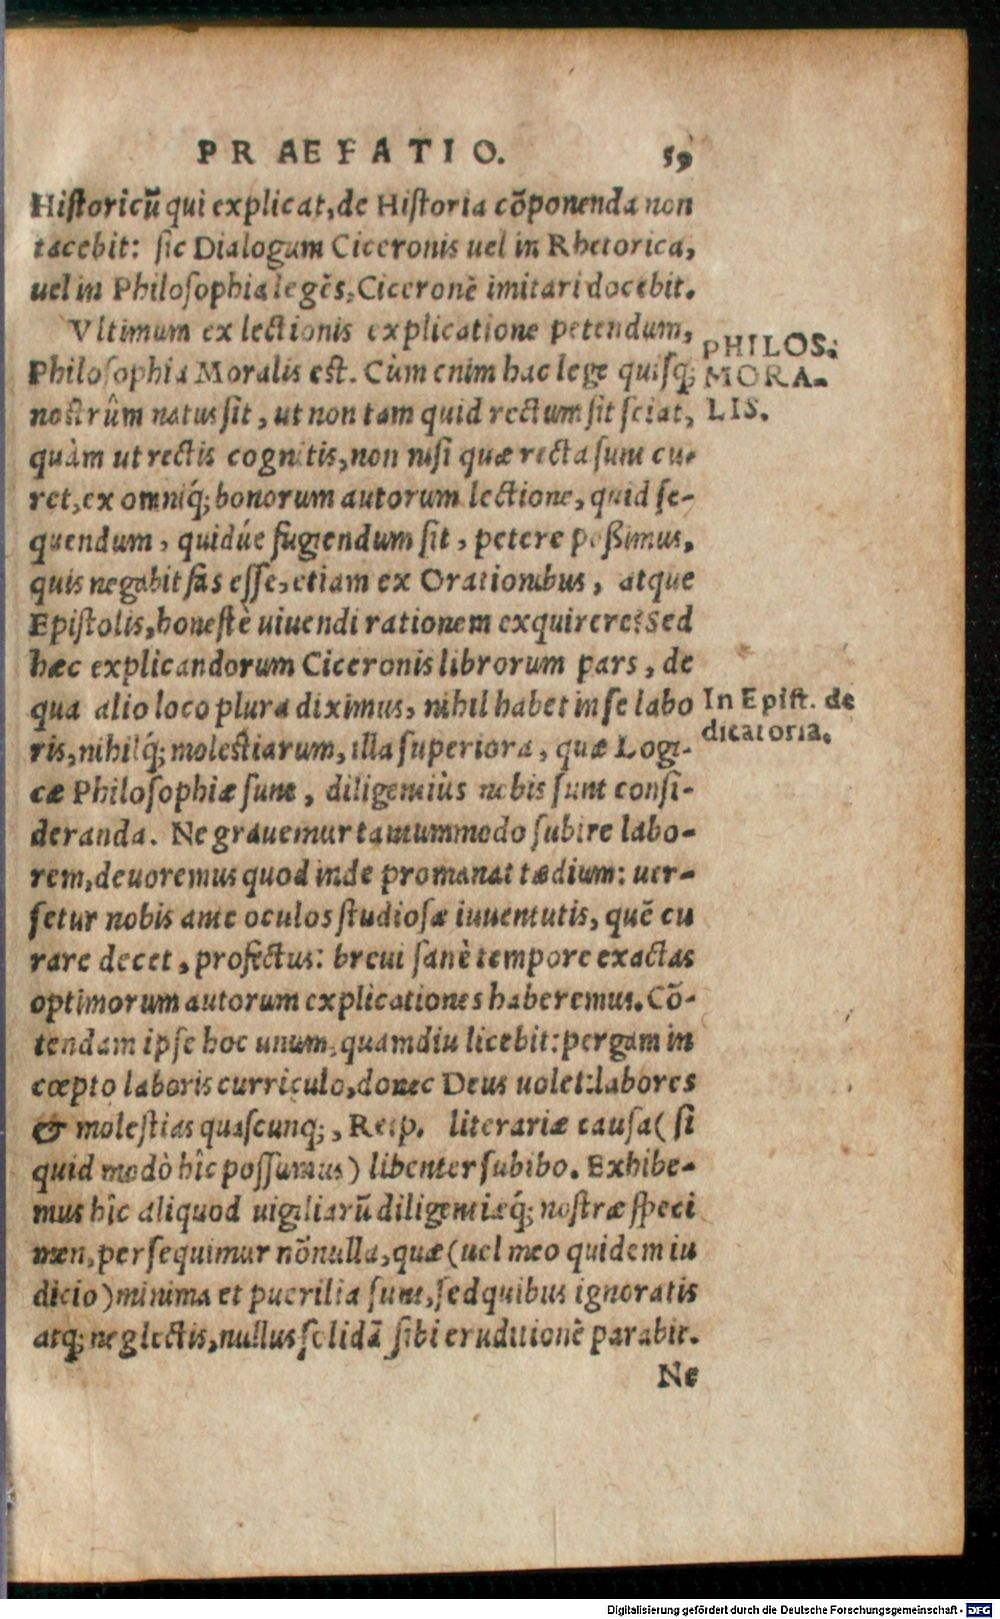 PRAEFATIO. 59
Historicũ qui explicat, de Historia cõponenda non
tacebit: sic Dialogum Ciceronis uel in Rhetorica,
uel in Philosophia legẽs, Ciceronẽ imitari docebit.
Vltimum ex lectionis explicatione petendum,
PHILOS.
Philosophia Moralis est. Cùm enim hac lege quisq;
MORA-
nostrûm natus sit, ut non tam quid rectum sit sciat,
LIS.
quàm ut rectis cognitis, non nisi quæ recta sunt cu-
ret, ex omniq́; bonorum autorum lectione, quid se-
quendum, quidúe fugiendum sit, petere poßimus,
quis negabit fas esse, etiam ex Orationibus, atque
Epistolis, honestè uiuendi rationem exquirere? Sed
hæc explicandorum Ciceronis librorum pars, de
qua alio loco plura diximus, nihil habet in se labo
In Epist. de
ris, nihilq́; molestiarum, illa superiora, quæ Logi-
dicatoria.
cæ Philosophiæ sunt, diligentiùs nobis sunt consi-
deranda. Ne grauemur tantummodo subire labo-
rem, deuoremus quod inde promanat tædium: uer-
setur nobis ante oculos studiosæ iuuentutis, quẽ cu
rare decet, profectus: breui sanè tempore exactas
optimorum autorum explicationes haberemus. Cõ-
tendam ipse hoc unum, quamdiu licebit: pergam in
cœpto laboris curriculo, donec Deus uolet: labores
& molestias quascunq;, Reip. literariæ causa (si
quid modò hîc possumus) libenter subibo. Exhibe-
mus hîc aliquod uigiliarũ diligentiæq́; nostræ speci
men, persequimur nõnulla, quæ (uel meo quidem iu
dicio) minima et puerilia sunt, sed quibus ignoratis
atq; neglectis, nullus solidã sibi eruditionẽ parabit.
Ne
Digitalisierung gefördert durch die Deutsche Forschungsgemeinschaft - DFG